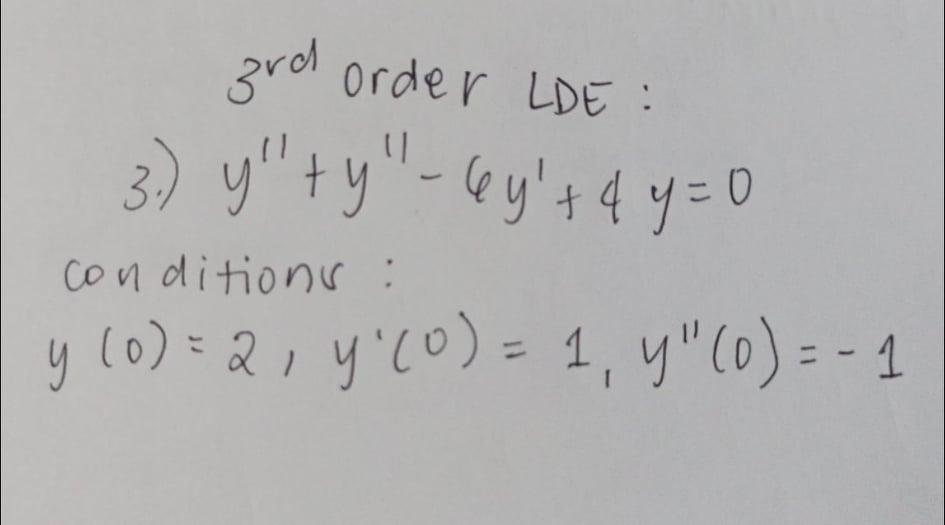 3rd order LDE :
3.) y''' + y'' - 6y' + 4y = 0
conditions :
y (0) = 2 , y'(0) = 1, y"(0) = - 1